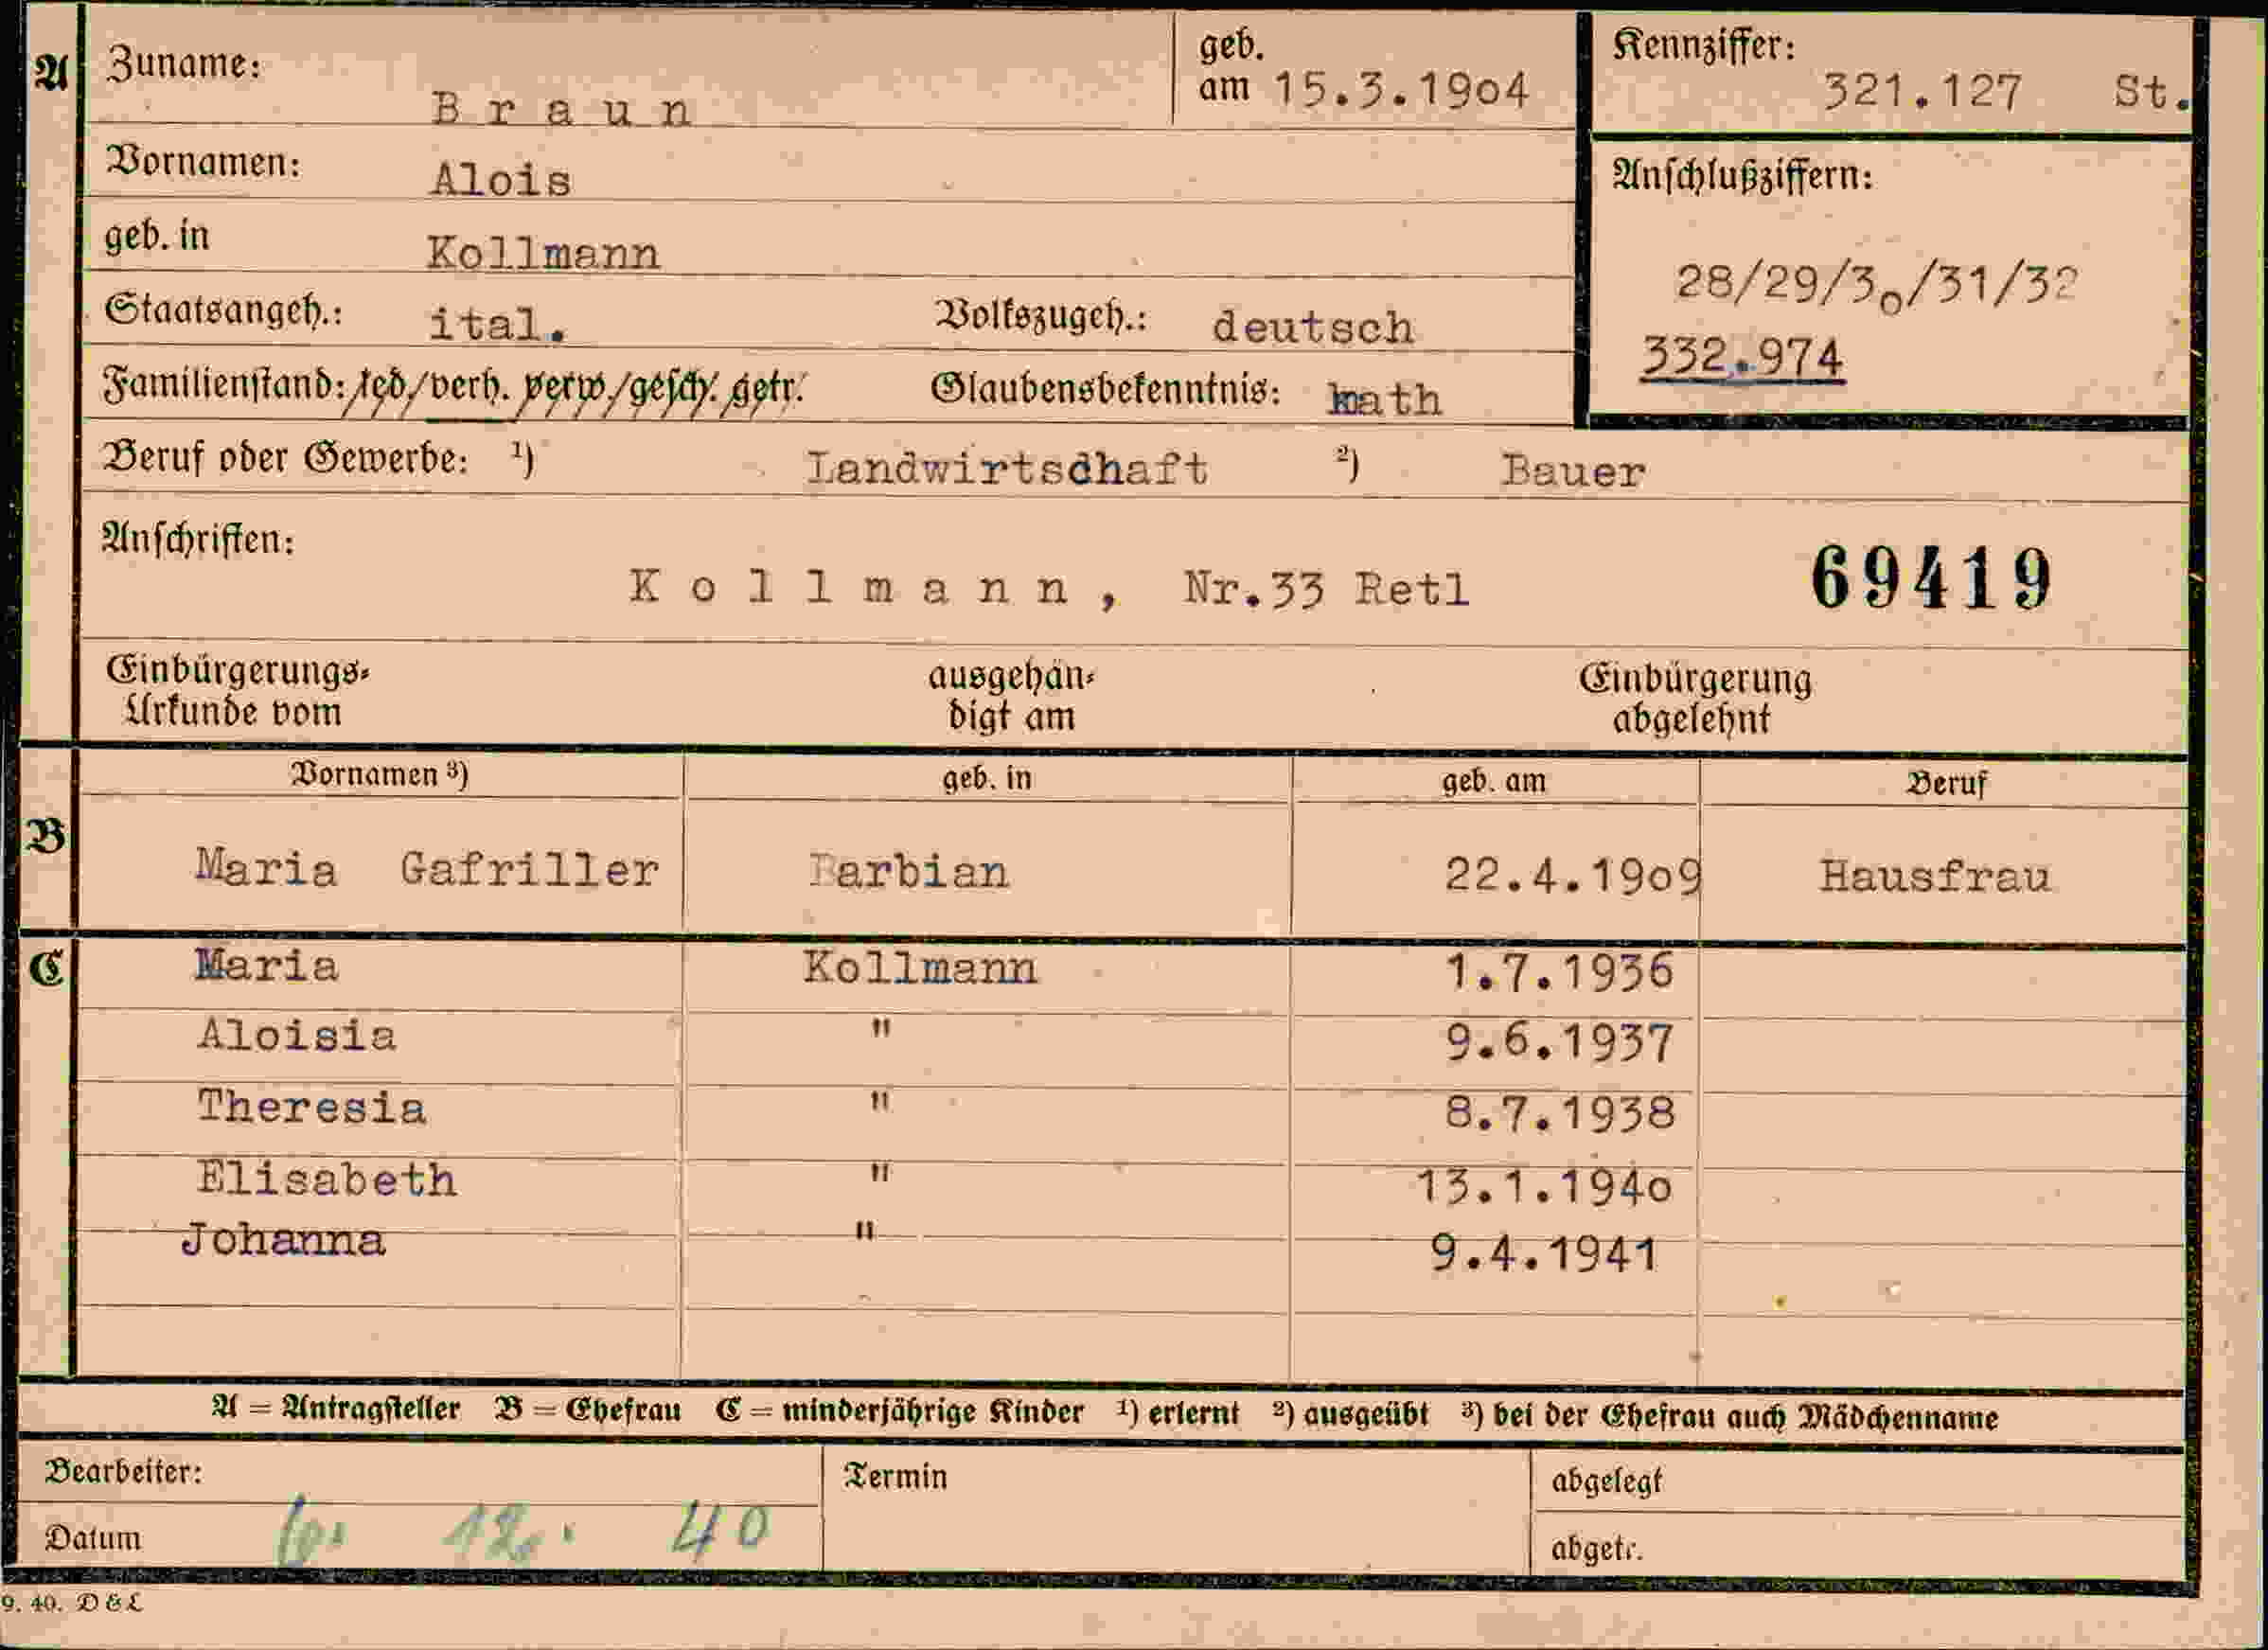 A Zuname: B r a u n geb. am 15.3.1904 Kennziffer: 321.127 St.
Vornamen: Alois Anschlußziffern:
geb. in Kollmann 28/29/30/31/32
Staatsangeh.: ital. Volkszugeh.: deutsch 332.974
Familienstand: led/verh. verw/gesch. getr. Glaubensbekenntnis: kath
Beruf oder Gewerbe: 1) Landwirtschaft 2) Bauer
Anschriften:
K o l l m a n n , Nr.33 Retl 69419
Einbürgerungs- ausgehän- Einbürgerung
Urkunde vom digt am abgelehnt
Vornamen 3) geb. in geb. am Beruf
B Maria Gafriller Barbian 22.4.1909 Hausfrau
C Maria Kollmann 1.7.1936
Aloisia " 9.6.1937
Theresia " 8.7.1938
Elisabeth " 13.1.1940
Johanna " 9.4.1941
A = Antragsteller B = Ehefrau C = minderjährige Kinder 1) erlernt 2) ausgeübt 3) bei der Ehefrau auch Mädchenname
Bearbeiter: Termin abgelegt
Datum 12. 40 abgetr.
9. 40. D & L